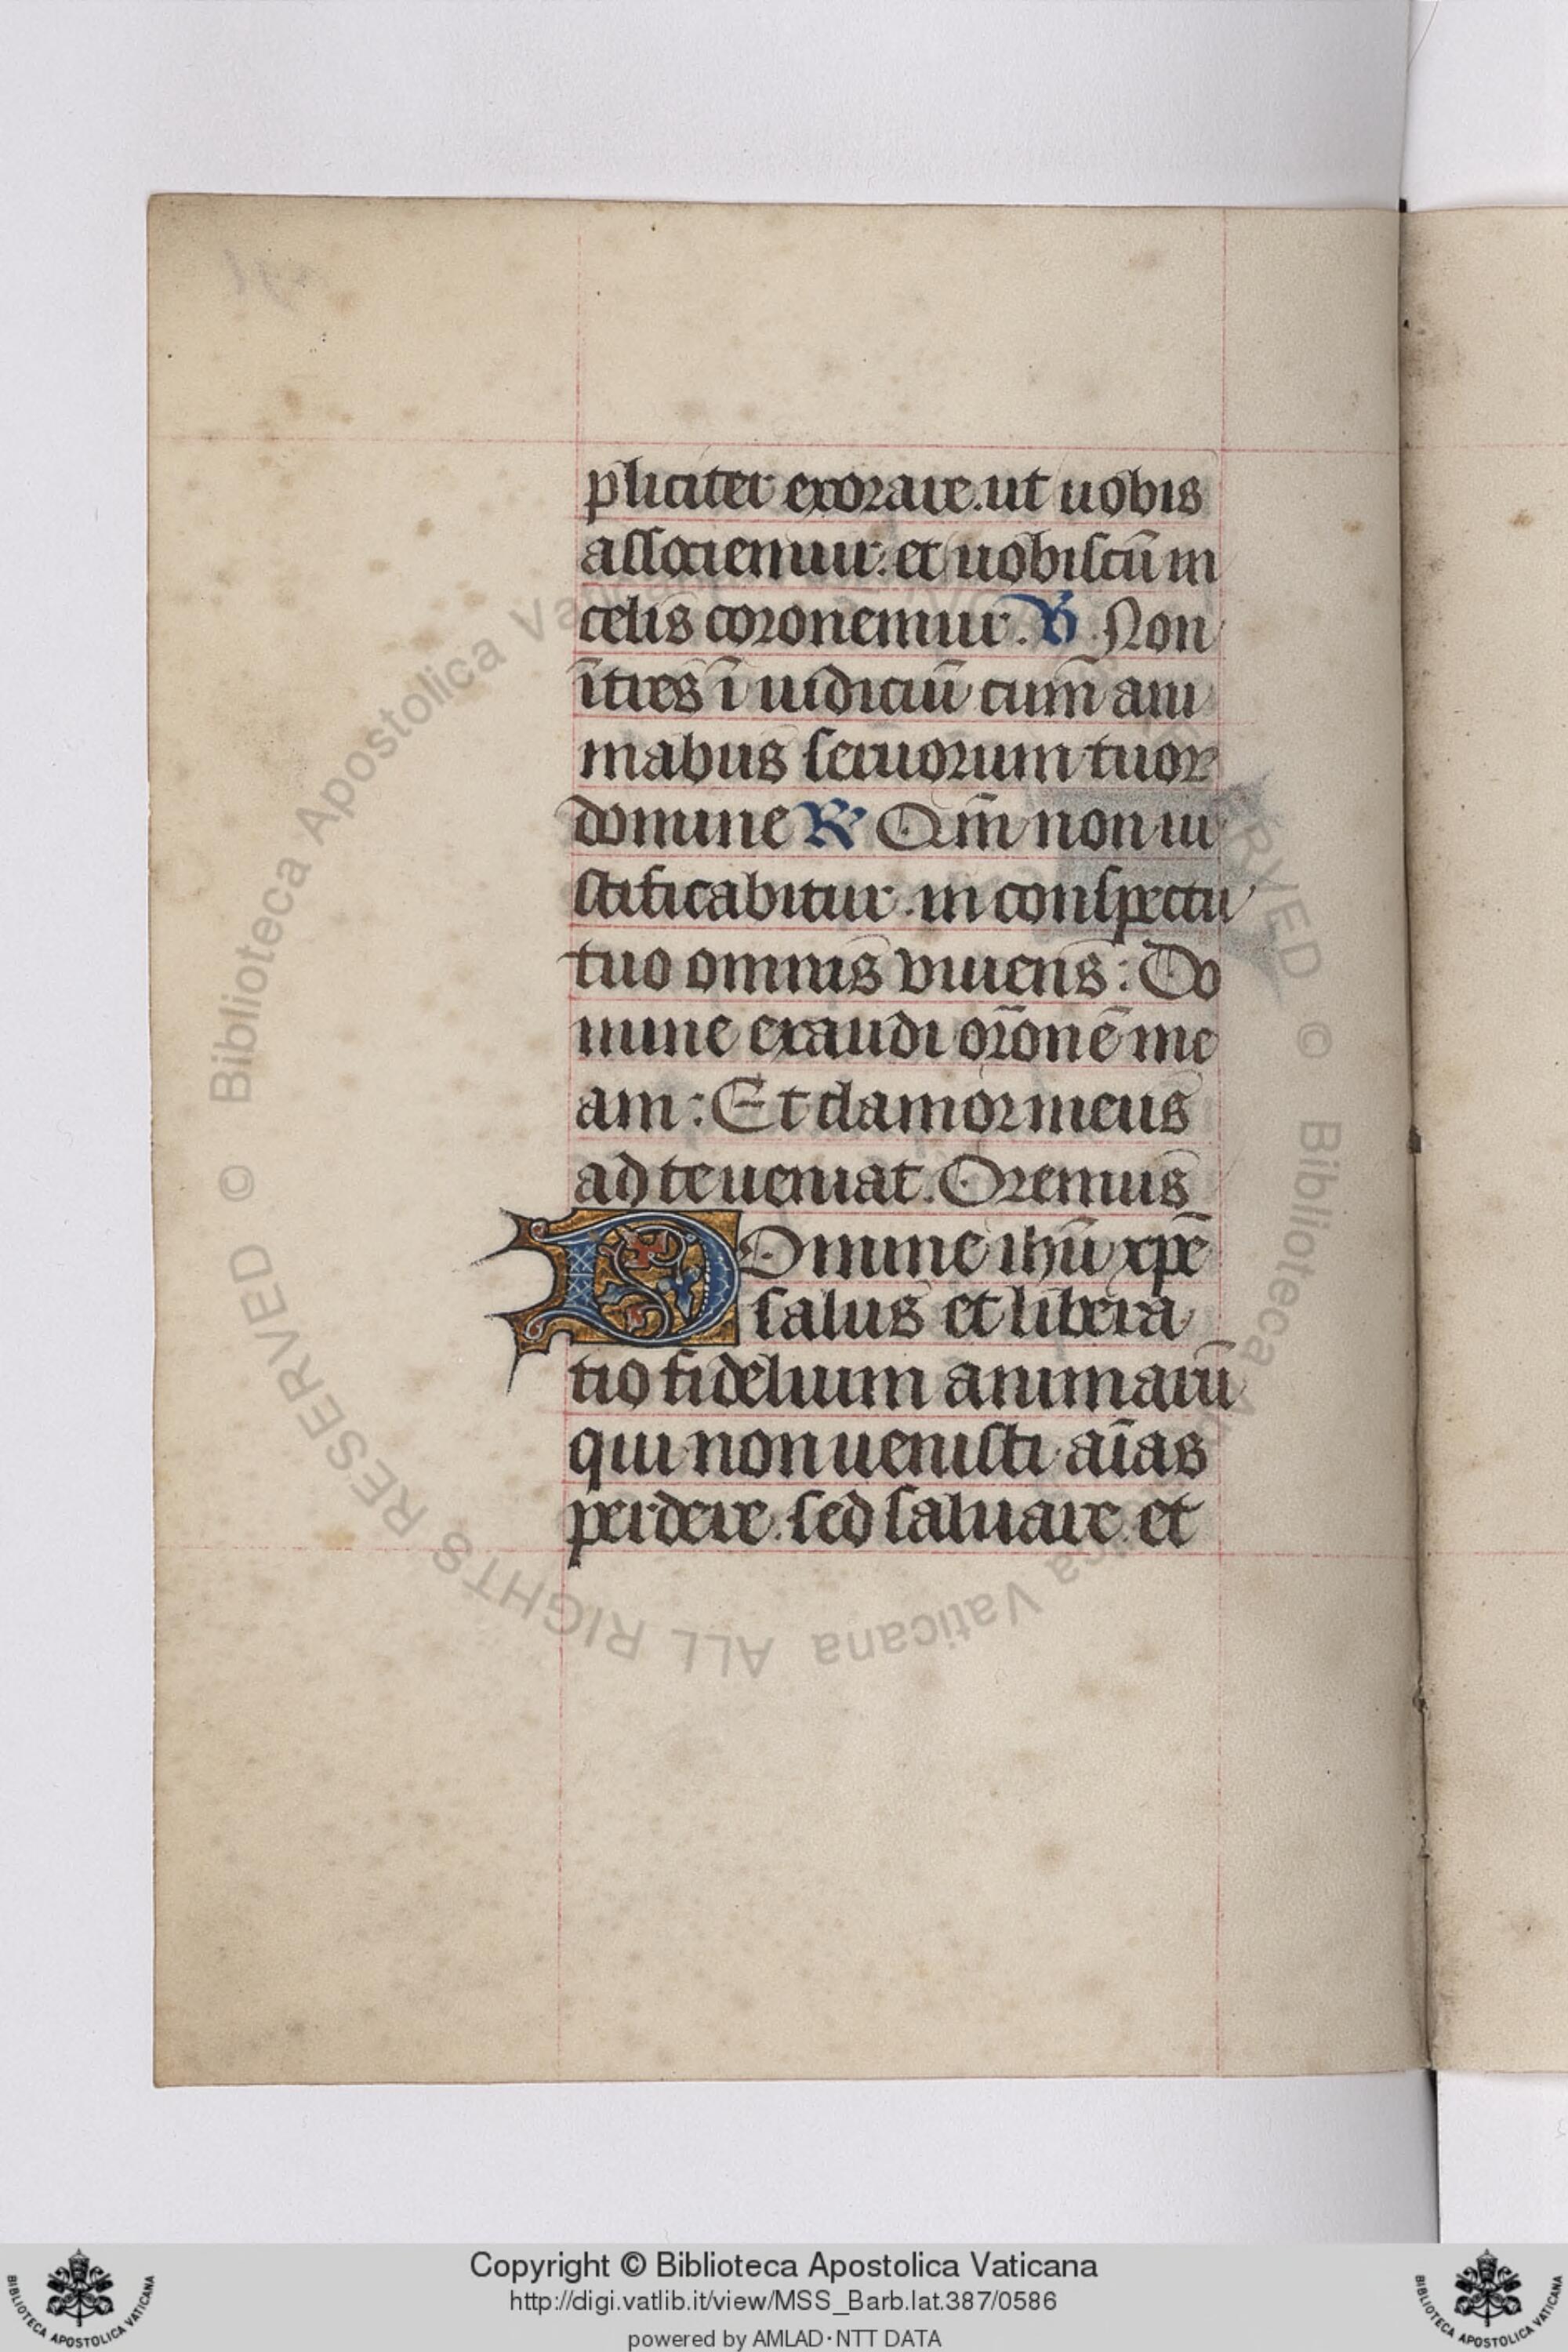 pliciter exorare. ut uobis
associemur: et uobiscū in
celis coronemur. V Non
ītres ī iudiciū cum ani
mabus seruorum tuor
domine R Qm̄ non iu
stificabitur. in conspectu
tuo omnis viuens: Do
mine exaudi or̄onē me
am: Et clamor meus
ad te ueniat. Oremus
DOmine ihū xpē
salus et libera
tio fidelium animarū
qui non uenisti aīas
perdere. sed saluare. et
© Biblioteca Apostolica Vaticana ALL RIGHTS RESERVED
Copyright © Biblioteca Apostolica Vaticana
http://digi.vatlib.it/view/MSS_Barb.lat.387/0586
powered by AMLAD·NTT DATA
BIBLIOTECA APOSTOLICA VATICANA
BIBLIOTECA APOSTOLICA VATICANA